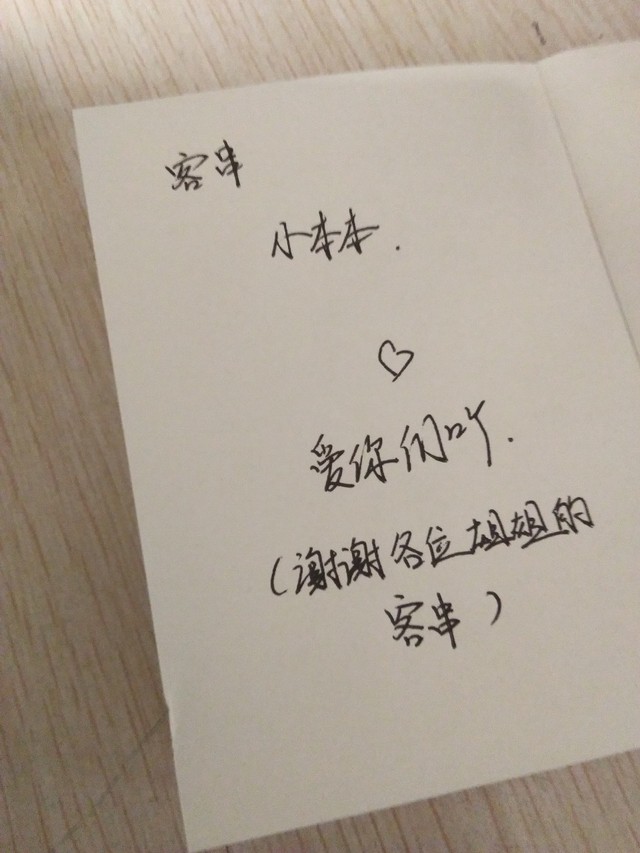 客串
小本本.
♡
爱你们吖.
(谢谢各位姐姐的
客串)